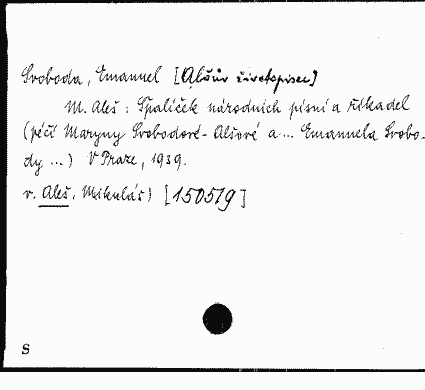 Svoboda, Emanuel [Alšův životopisec]
M. Aleš : Špalíček národních písní a říkadel
(péčí Maryny Svobodové-Alšové a ... Emanuela Svobo-
dy ...) V Praze, 1939.
v. Aleš, Mikuláš) [150519]
S